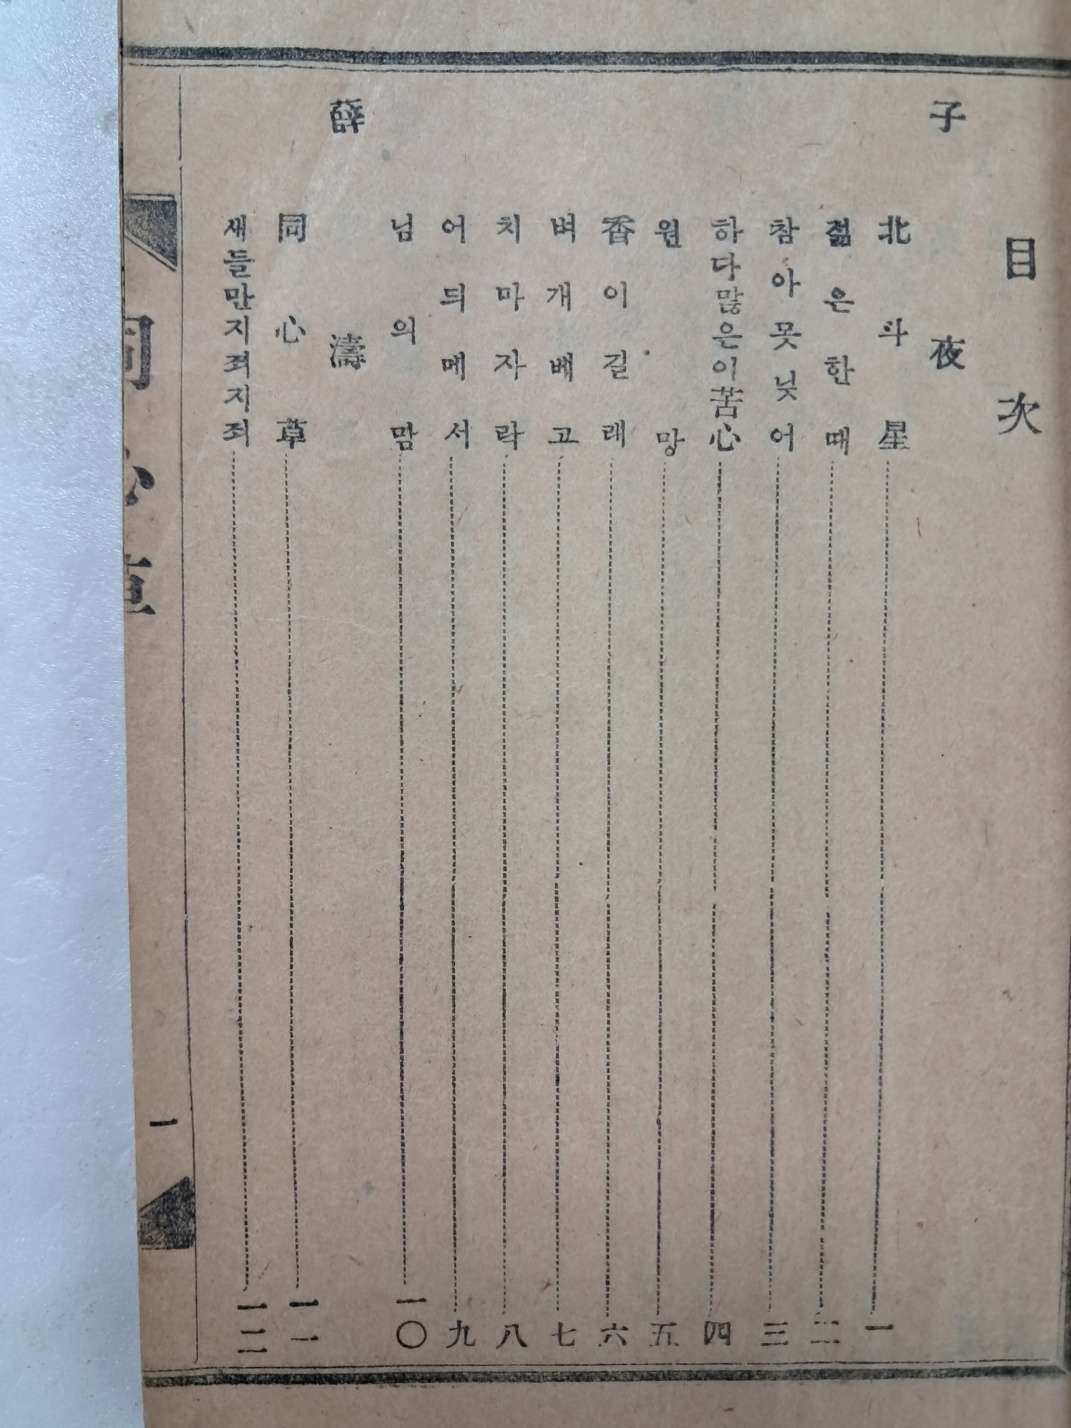 目次
子夜
北斗星 一
젊은한때 二
참아못닞어 三
하다많은이苦心 四
원망 五
香이길래 六
벼개베고 七
치마자락 八
어듸메서 九
님의맘 一〇
薛濤
同心草 一一
새들만지죄지죄 一二
同心草
一